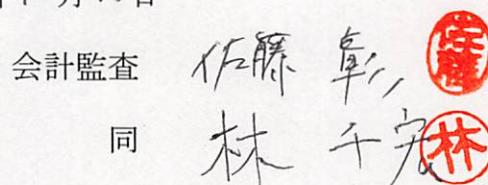 会計監査 佐藤 彰 佐藤
同 林 千宏 林